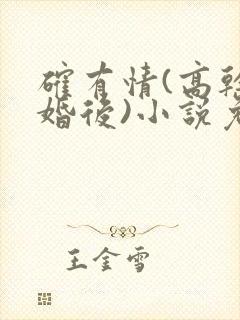 確有情(高幹
婚後)小說免
王金雪